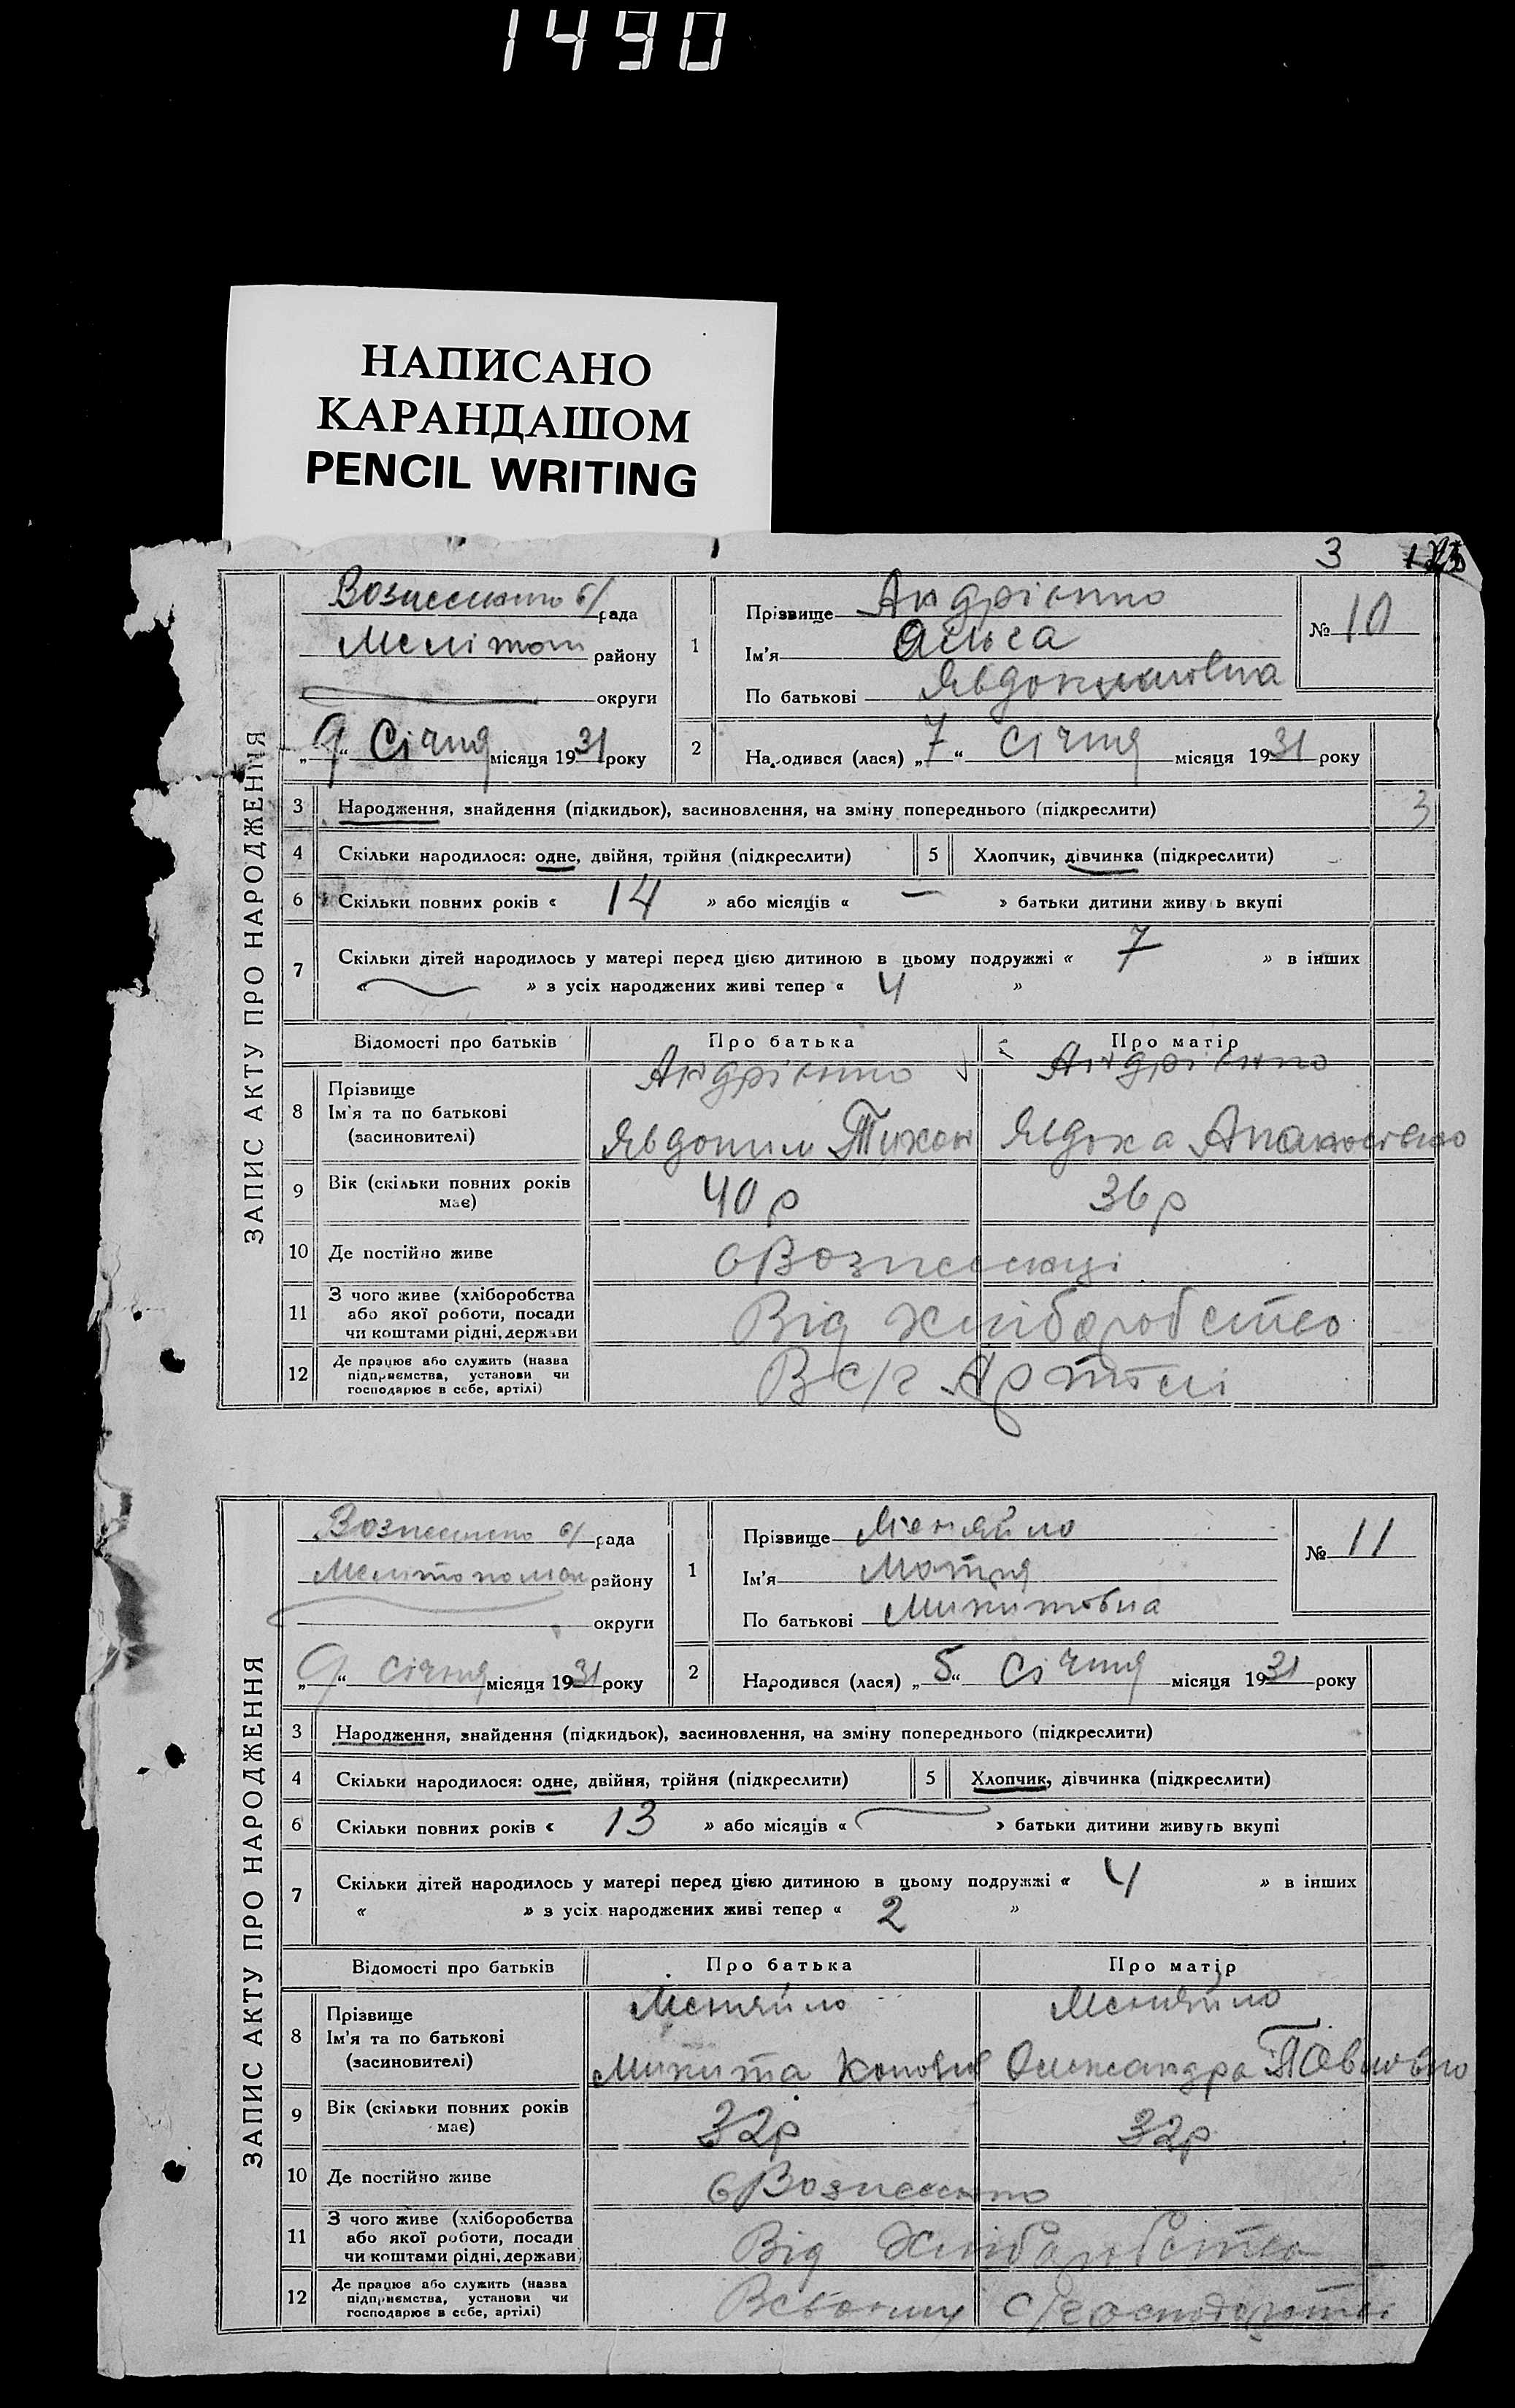 1490
НАПИСАНО
КАРАНДАШОМ
PENCIL WRITING
3
ЗАПИС АКТУ ПРО НАРОДЖЕННЯ
рада
Меліτοп району
округи
„9“ Січня місяця 1931 року
1
Прізвище Андрієнко
Ім'я
По батькові
№ 10
2
Народився (лася) „7“ Січня місяця 1931 року
3 Народження, знайдення (підкидьок), засиновлення, на зміну попереднього (підкреслити)
3
4 Скільки народилося: одне, двійня, трійня (підкреслити) 5 Хлопчик, дівчинка (підкреслити)
6 Скільки повних років « 14 » або місяців « — » батьки дитини живу ь вкупі
7 Скільки дітей народилось у матері перед цією дитиною в цьому подружжі « 7 » в інших
« » з усіх народжених живі тепер « 4 »
Відомості про батьків Про батька Про матір
8 Прізвище
Ім'я та по батькові
(засиновителі)
Андрієнко
Явдоким Тихон
Андрієнко
Явдоха
9 Вік (скільки повних років має) 40 р 36 р
10 Де постійно живе
11 З чого живе (хліборобства або якої роботи, посади чи коштами рідні, держави Від хліборобство
12 Де працює або служить (назва підприємства, установи чи господарює в себе, артілі) В с/г Артелі
ЗАПИС АКТУ ПРО НАРОДЖЕННЯ
рада
району
округи
„9“ січня місяця 1931 року
1
Прізвище Меняйло
Ім'я
По батькові Микитовна
№ 11
2
Народився (лася) „5“ Січня місяця 1931 року
3 Народження, знайдення (підкидьок), засиновлення, на зміну попереднього (підкреслити)
4 Скільки народилося: одне, двійня, трійня (підкреслити) 5 Хлопчик, дівчинка (підкреслити)
6 Скільки повних років « 13 » або місяців « » батьки дитини живуть вкупі
7 Скільки дітей народилось у матері перед цією дитиною в цьому подружжі « 4 » в інших
« » з усіх народжених живі тепер « 2 »
Відомості про батьків Про батька Про матір
8 Прізвище
Ім'я та по батькові
(засиновителі)
Меняйло
Микита
Меняйло
Олександра
9 Вік (скільки повних років має) 32р 32р
10 Де постійно живе
11 З чого живе (хліборобства або якої роботи, посади чи коштами рідні, держави) Від Хліборобство
12 Де працює або служить (назва підприємства, установи чи господарює в себе, артілі)